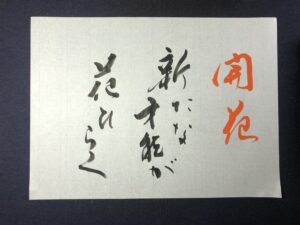 開花
新たな
才能が
花ひらく